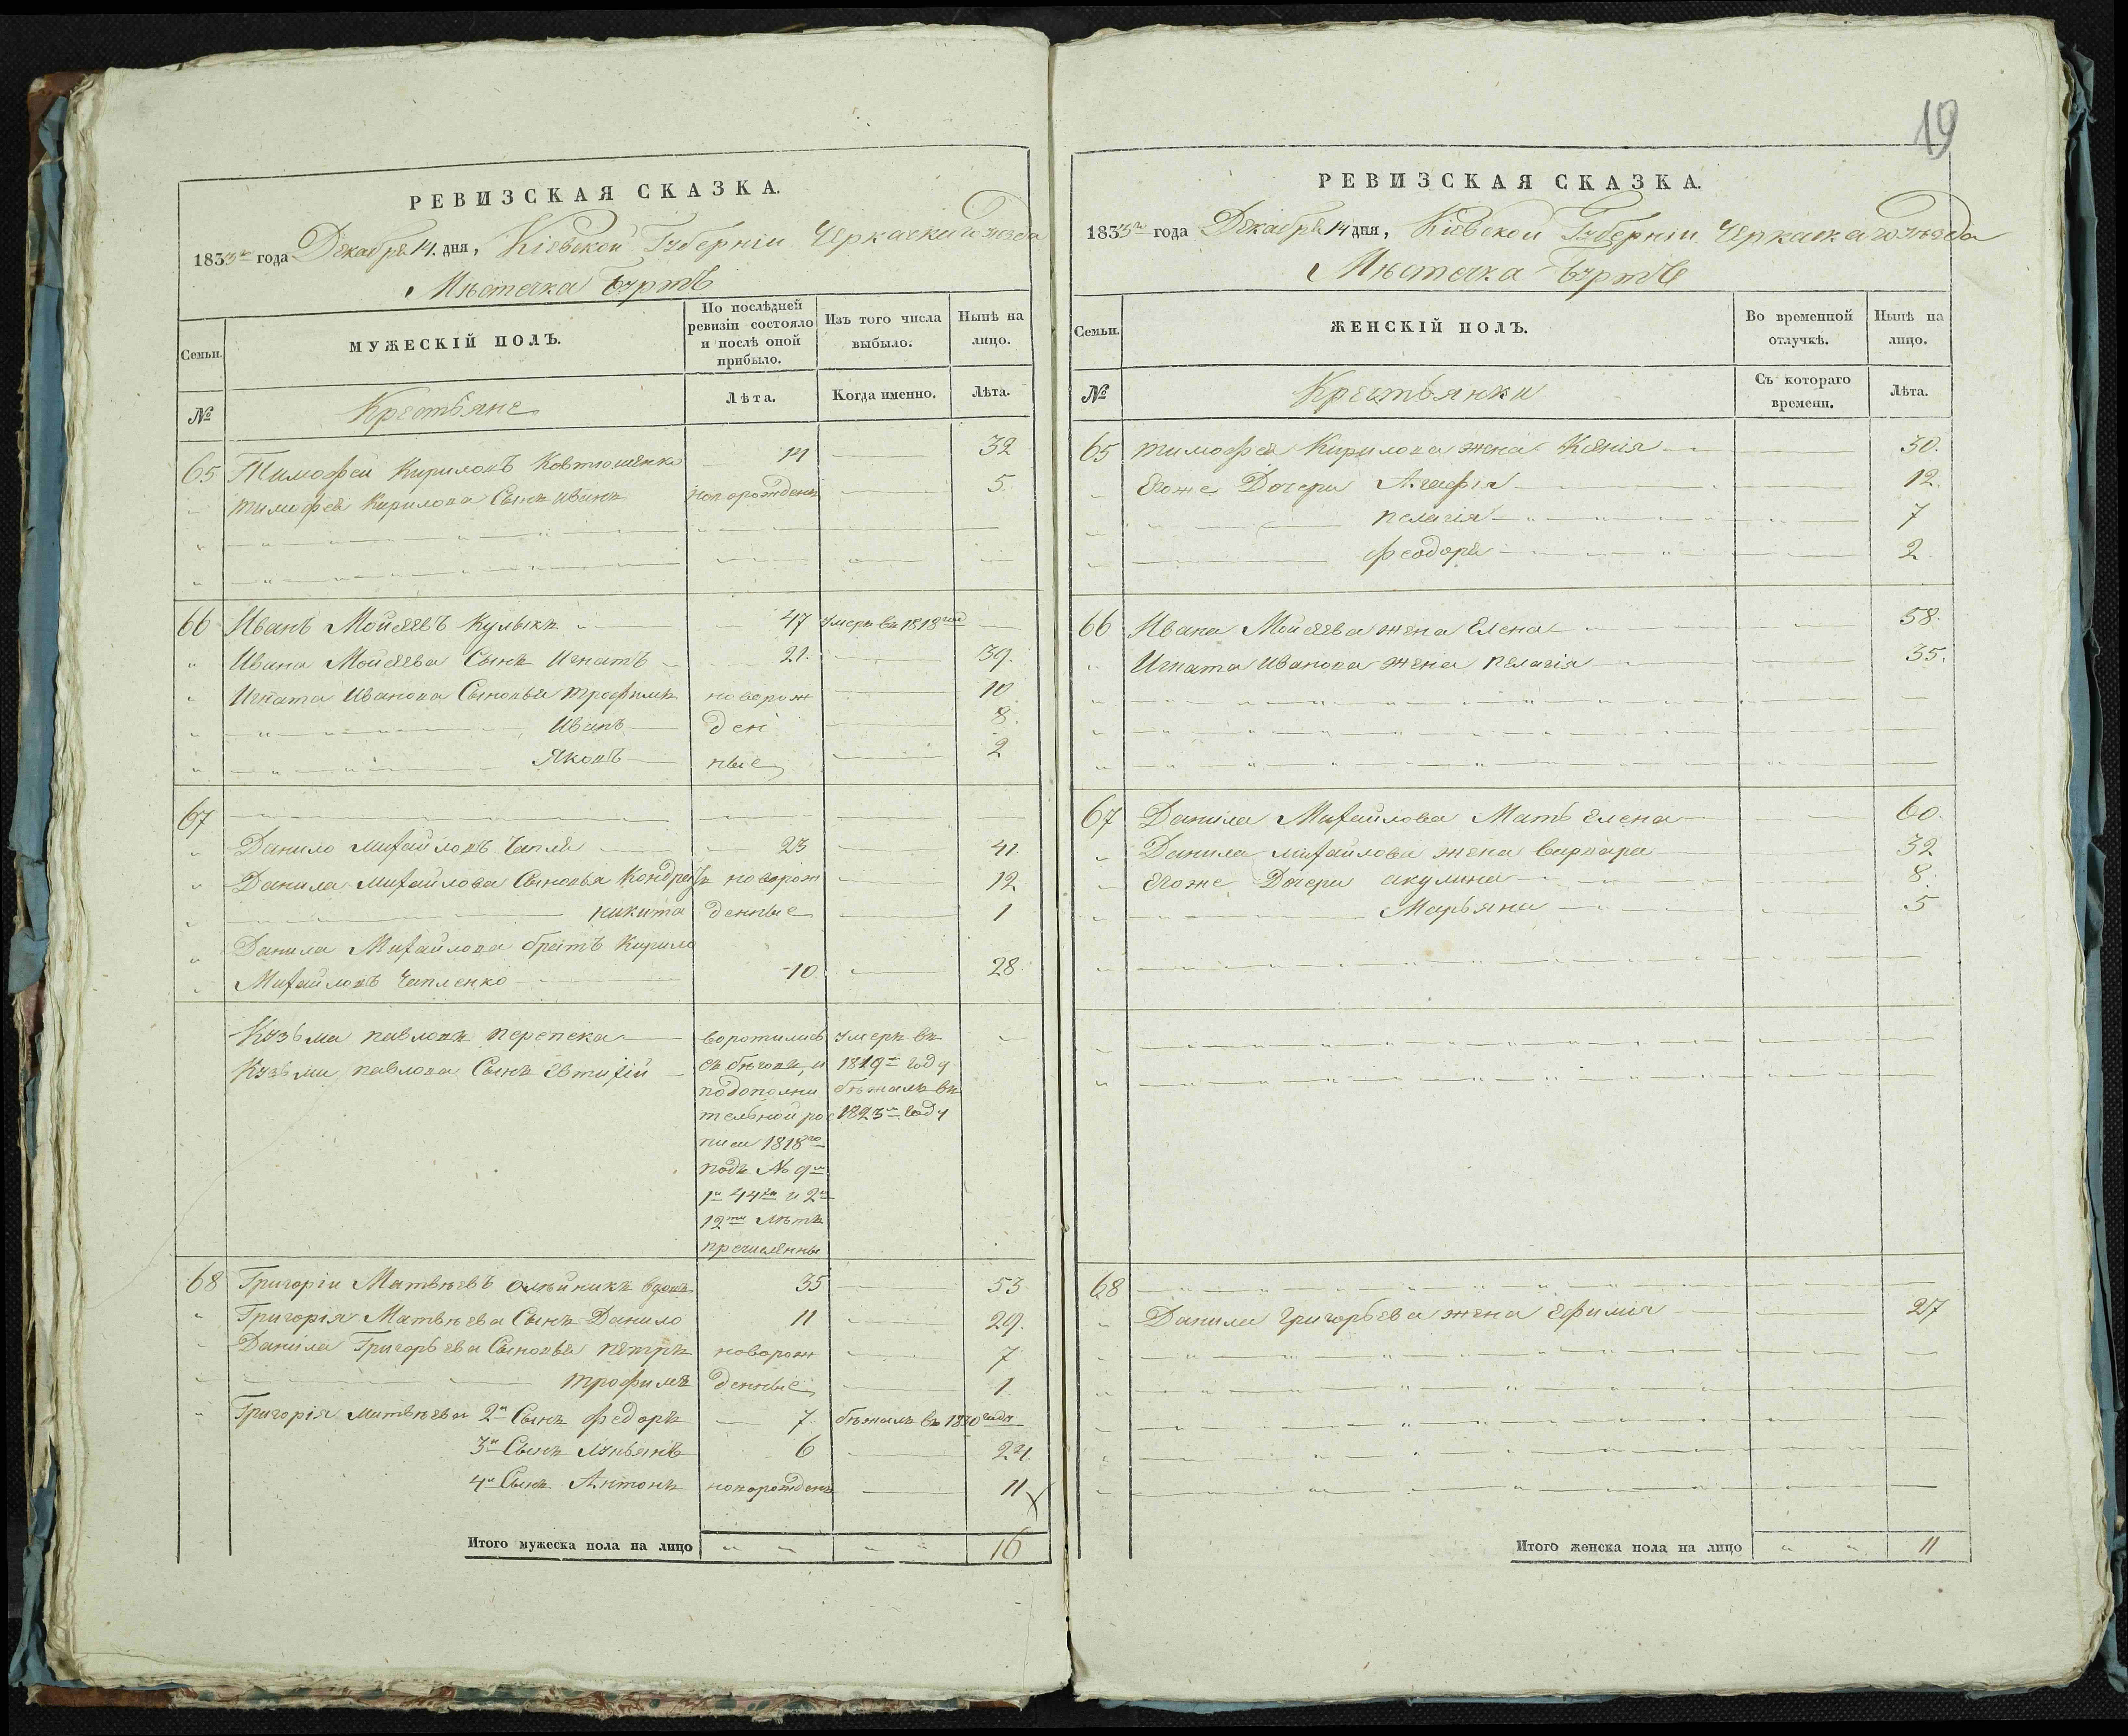 19
РЕВИЗСКАЯ СКАЗКА.
1833го года Декабря 14. дня, Кіевской Губерніи Черкаскаго уезда
Мѣстечка Буртъ
Семьи. МУЖЕСКІЙ ПОЛЪ. По послѣдней ревизіи состояло и послѣ оной прибыло. Изъ того числа выбыло. Нынѣ на лицо.
№ Крестьяне Лѣта. Когда именно. Лѣта.
65 Тимофей Кириловъ Ковтюшенко 14 32
Тимофея Кирилова Сынъ Иванъ новорожденъ 5
66 Иванъ Мойсеевъ Кулыкъ 47 умеръ въ 1818 год
Ивана Мойсеева Сынъ Игнатъ 21. 39.
Игната Иванова Сыновья Трофимъ новорож 10
Иванъ ден 8.
Яковъ ные 2
67
Данило Михайловъ Чапля 23 41
Данила Михайлова Сыновья Кондратъ новорож 12
никита денные 1
Данила Михайлова братъ Кирило
Михайловъ Чапленко 10 28.
Кузьма павловъ перепека воротились умеръ въ
Кузьми павлова Сынъ Евтихій съ бѣговъ, и 1819м году
подополни бѣжалъ въ
тельной рос 1823м году
писи 1818го
подъ № 9м
1й 44хъ и 2й
12ти лѣтъ
пречисленны
68 Григорій Матвѣевъ олѣйникъ вдовъ 35 53
Григорія Матвѣева Сынъ Данило 11 29.
Данила Григорьева Сыновья петръ новорож 7
трофимъ денные 1
Григорія Матвѣева 2й Сынъ федоръ 7. бѣжалъ въ 1830 году
3й Сынъ Лукьянъ 6 24.
4й Сынъ Антонъ новорожденъ 11
Итого мужеска пола на лицо 16
РЕВИЗСКАЯ СКАЗКА.
1833го года Декабря 14 дня, Кіевской Губерніи Черкаскаго уезда
Мѣстечка Буртъ
Семьи. ЖЕНСКІЙ ПОЛЪ. Во временной отлучкѣ. Нынѣ на лицо.
№ Крестьянки Съ котораго времени. Лѣта.
65 Тимофея Кирилова жена Ксенія 30.
Егоже Дочери Агафія 12.
пелагія 7
феодора 2
66 Ивана Мойсеева жена Елена 58.
Игната Иванова жена пелагія 35.
67 Данила Михайлова Мать Елена 60.
Данила Михайлова жена варвара 32
Егоже Дочери акулина 8.
Марьяна 5
68
Данила Григорьева жена Ефимія 27
Итого женска пола на лицо 11